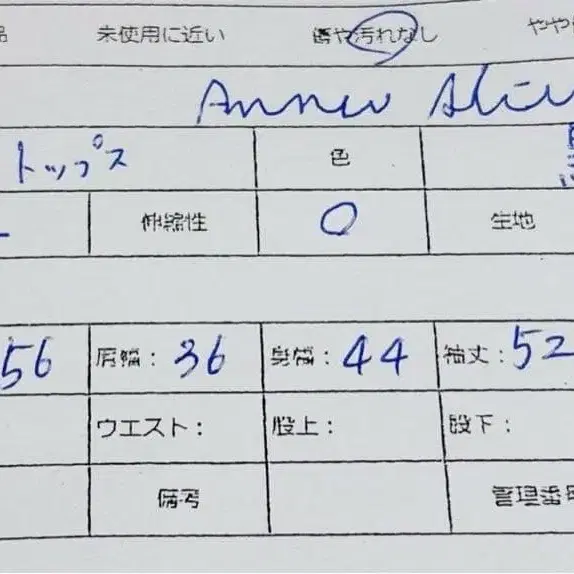 品 未使用に近い 傷や汚れなし やや
トップス 色
伸縮性 0 生地
56 肩幅: 36 身幅: 44 袖丈: 52
ウエスト: 股上: 股下:
備考 管理番